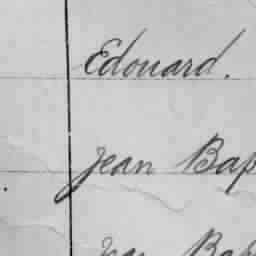 Edouard.
Jean Bap